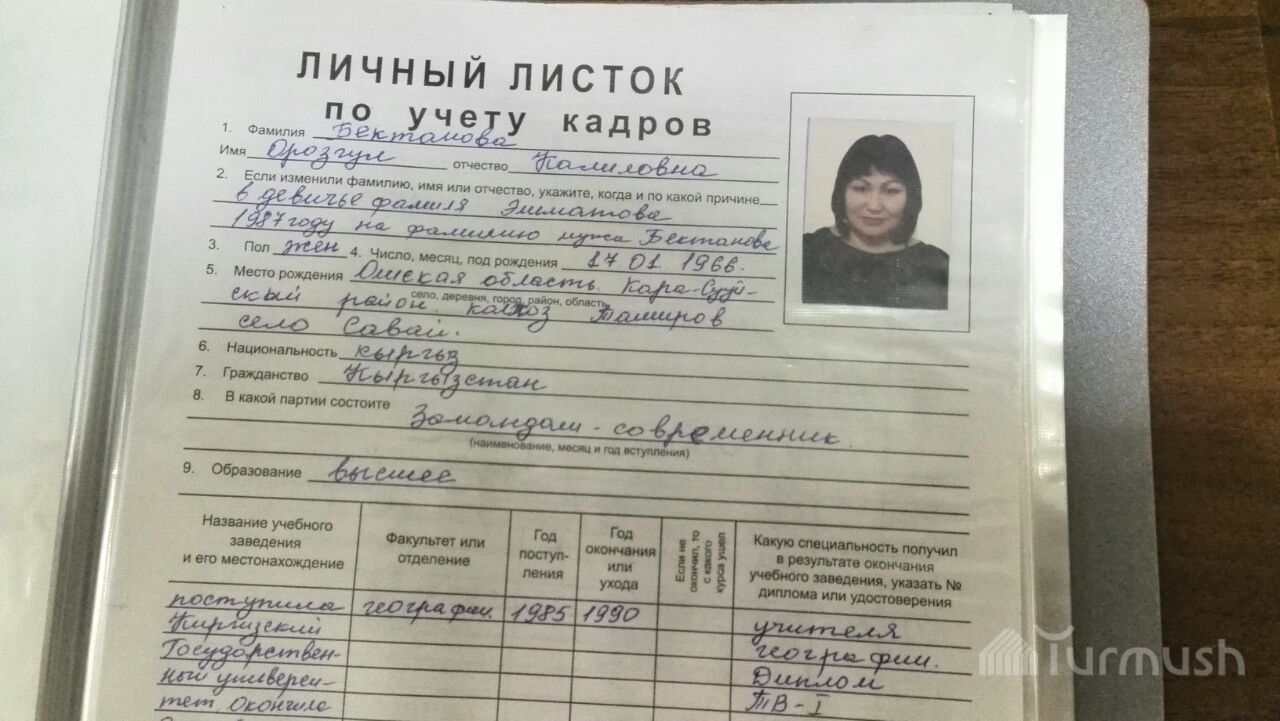 ЛИЧНЫЙ ЛИСТОК
по учету кадров
1. Фамилия Бектанова
Имя Орозгул отчество Калиловна
2. Если изменили фамилию, имя или отчество, укажите, когда и по какой причине
в девичье фамилья Эшматова
1987 году на фамилию мужа Бектанова
3. Пол жен 4. Число, месяц, год рождения 17 01. 1966.
5. Место рождения Ошская область. Кара-Сууй-
село, деревня, город, район, область
ский район. колхоз Таширов
село Савай.
6. Национальность кыргыз
7. Гражданство Кыргызстан
8. В какой партии состоите
Замандаш - современник.
(наименование, месяц и год вступления)
9. Образование высшее
Название учебного заведения и его местонахождение
Факультет или отделение
Год поступ-ления
Год окончания или ухода
Если не окончил, то с какого курса ушел
Какую специальность получил в результате окончания учебного заведения, указать № диплома или удостоверения
поступила географии. 1985 1990
Киргизский учителя
Государствен- географии.
ный универси- Диплом
тет. Окончила ТВ-I
Turmush